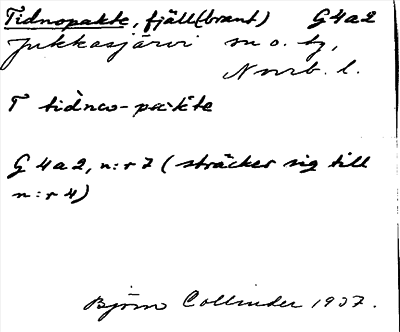 Tidnopakte, fjäll(brant) G4a2
Jukkasjärvi sn o. tg,
Norrb. l.
T tidno-pakte
G 4a2, n:r 7 (sträcker sig till
n:r 4)
Björn Collinder 1937.